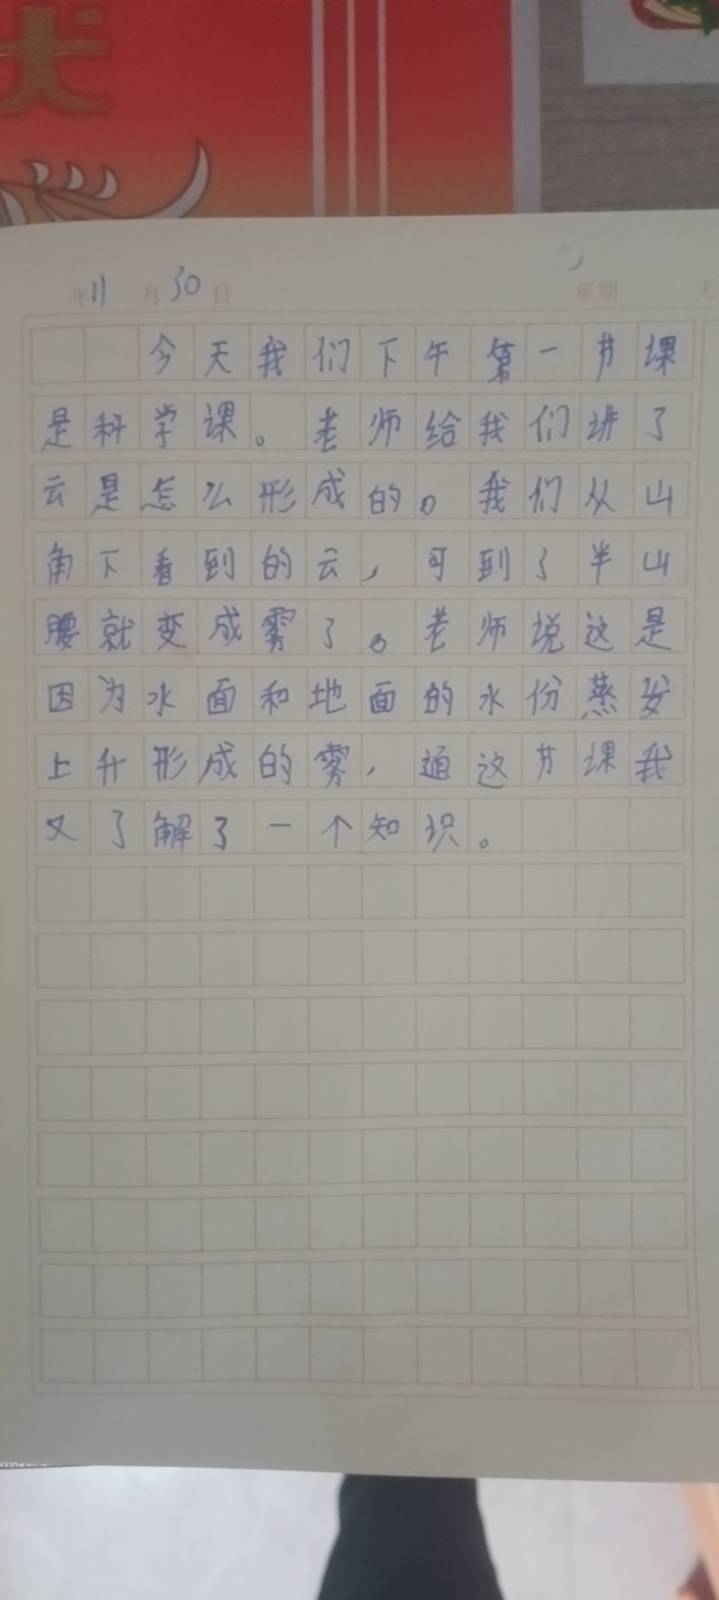 年11月30日 星期 天
今天我们下午第一节课
是科学课。老师给我们讲了
云是怎么形成的。我们从山
角下看到的云，可到了半山
腰就变成雾了。老师说这是
因为水面和地面的水份蒸发
上升形成的雾，通这节课我
又了解了一个知识。